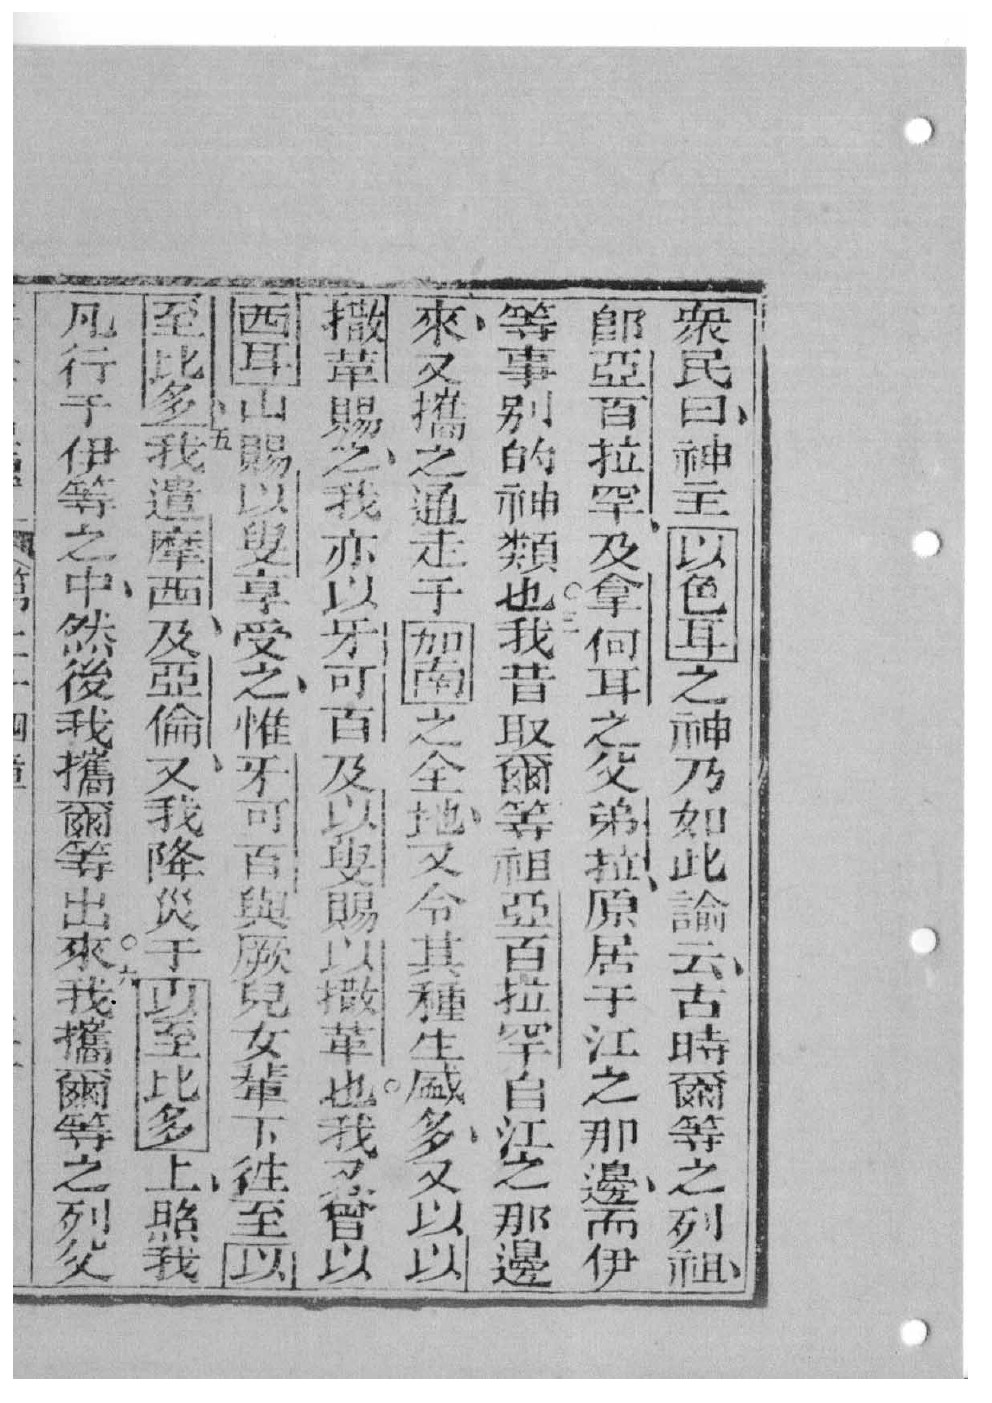 衆民曰、神主以色耳之神乃如此諭云、古時爾等之列祖、
郎亞百拉罕、及拿何耳之父弟拉、原居于江之那邊、而伊
等事別的神類也。三我昔取爾等祖亞百拉罕自江之那邊
來、又攜之通走于加南之全地、又令其種生盛多、又以以
撒革賜之、我亦以牙可百及以叟賜以撒革也。我又曾以
西耳山賜以叟享受之、惟牙可百與厥兒女輩下徃至以
至比多、五我遣摩西、及亞倫、又我降災于以至比多上、照我
凡行于伊等之中、然後我攜爾等出來。六我攜爾等之列父
第二十四章